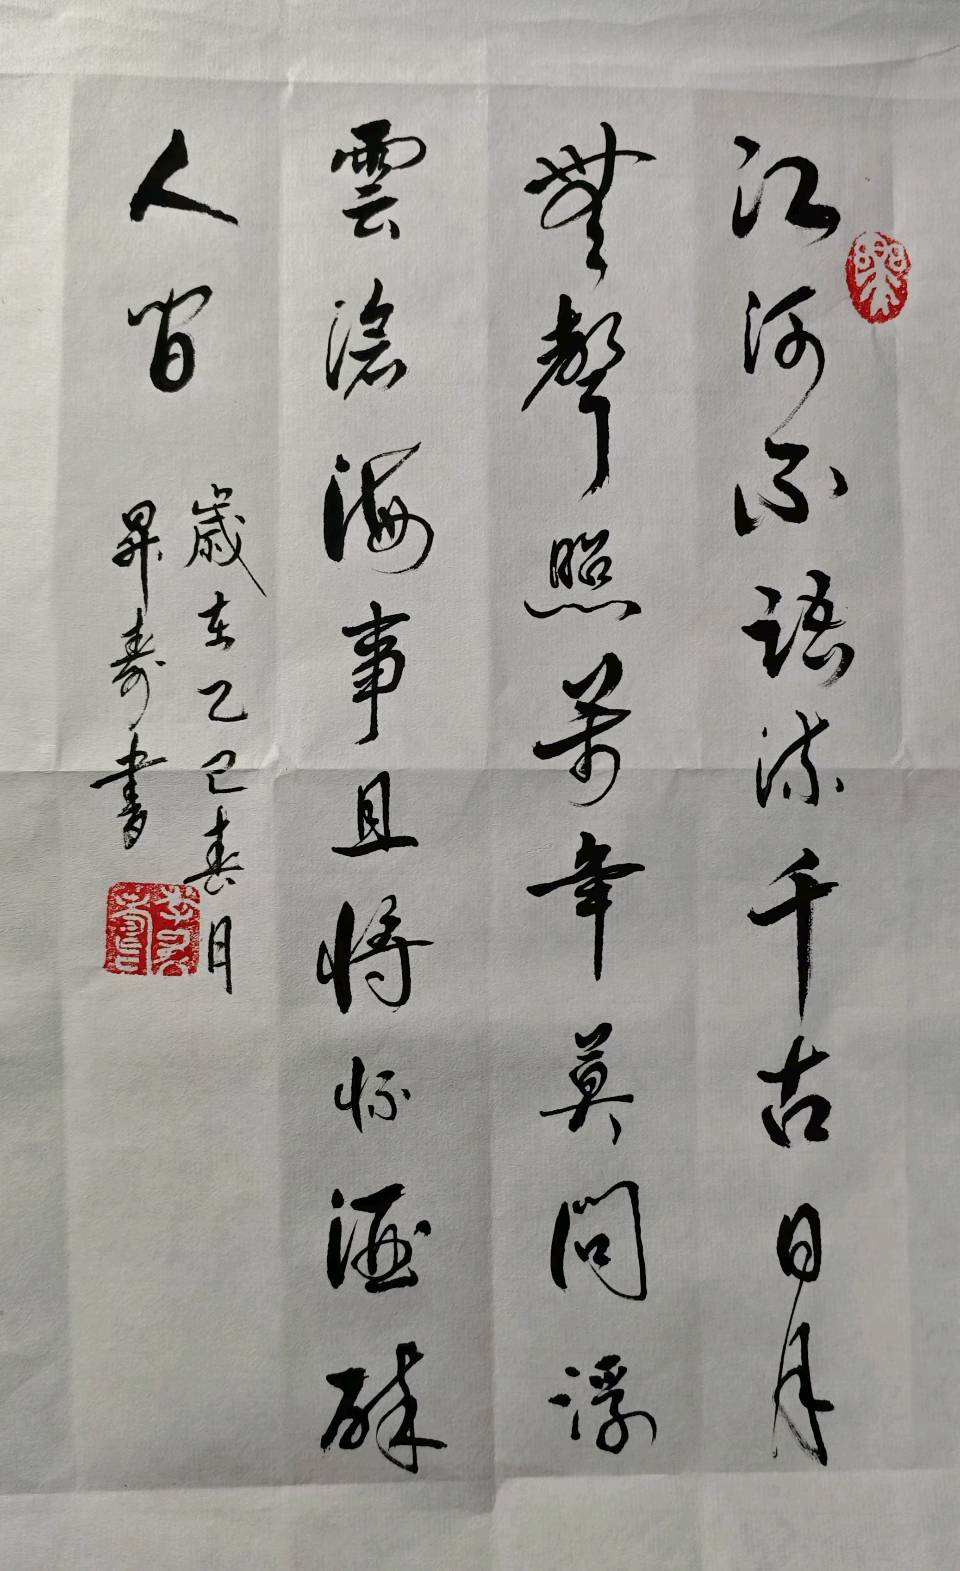 江河不語流千古日月
無聲照萬年莫問浮
雲滄海事且將杯酒醉
人間
歲在乙巳春月
昇壽書